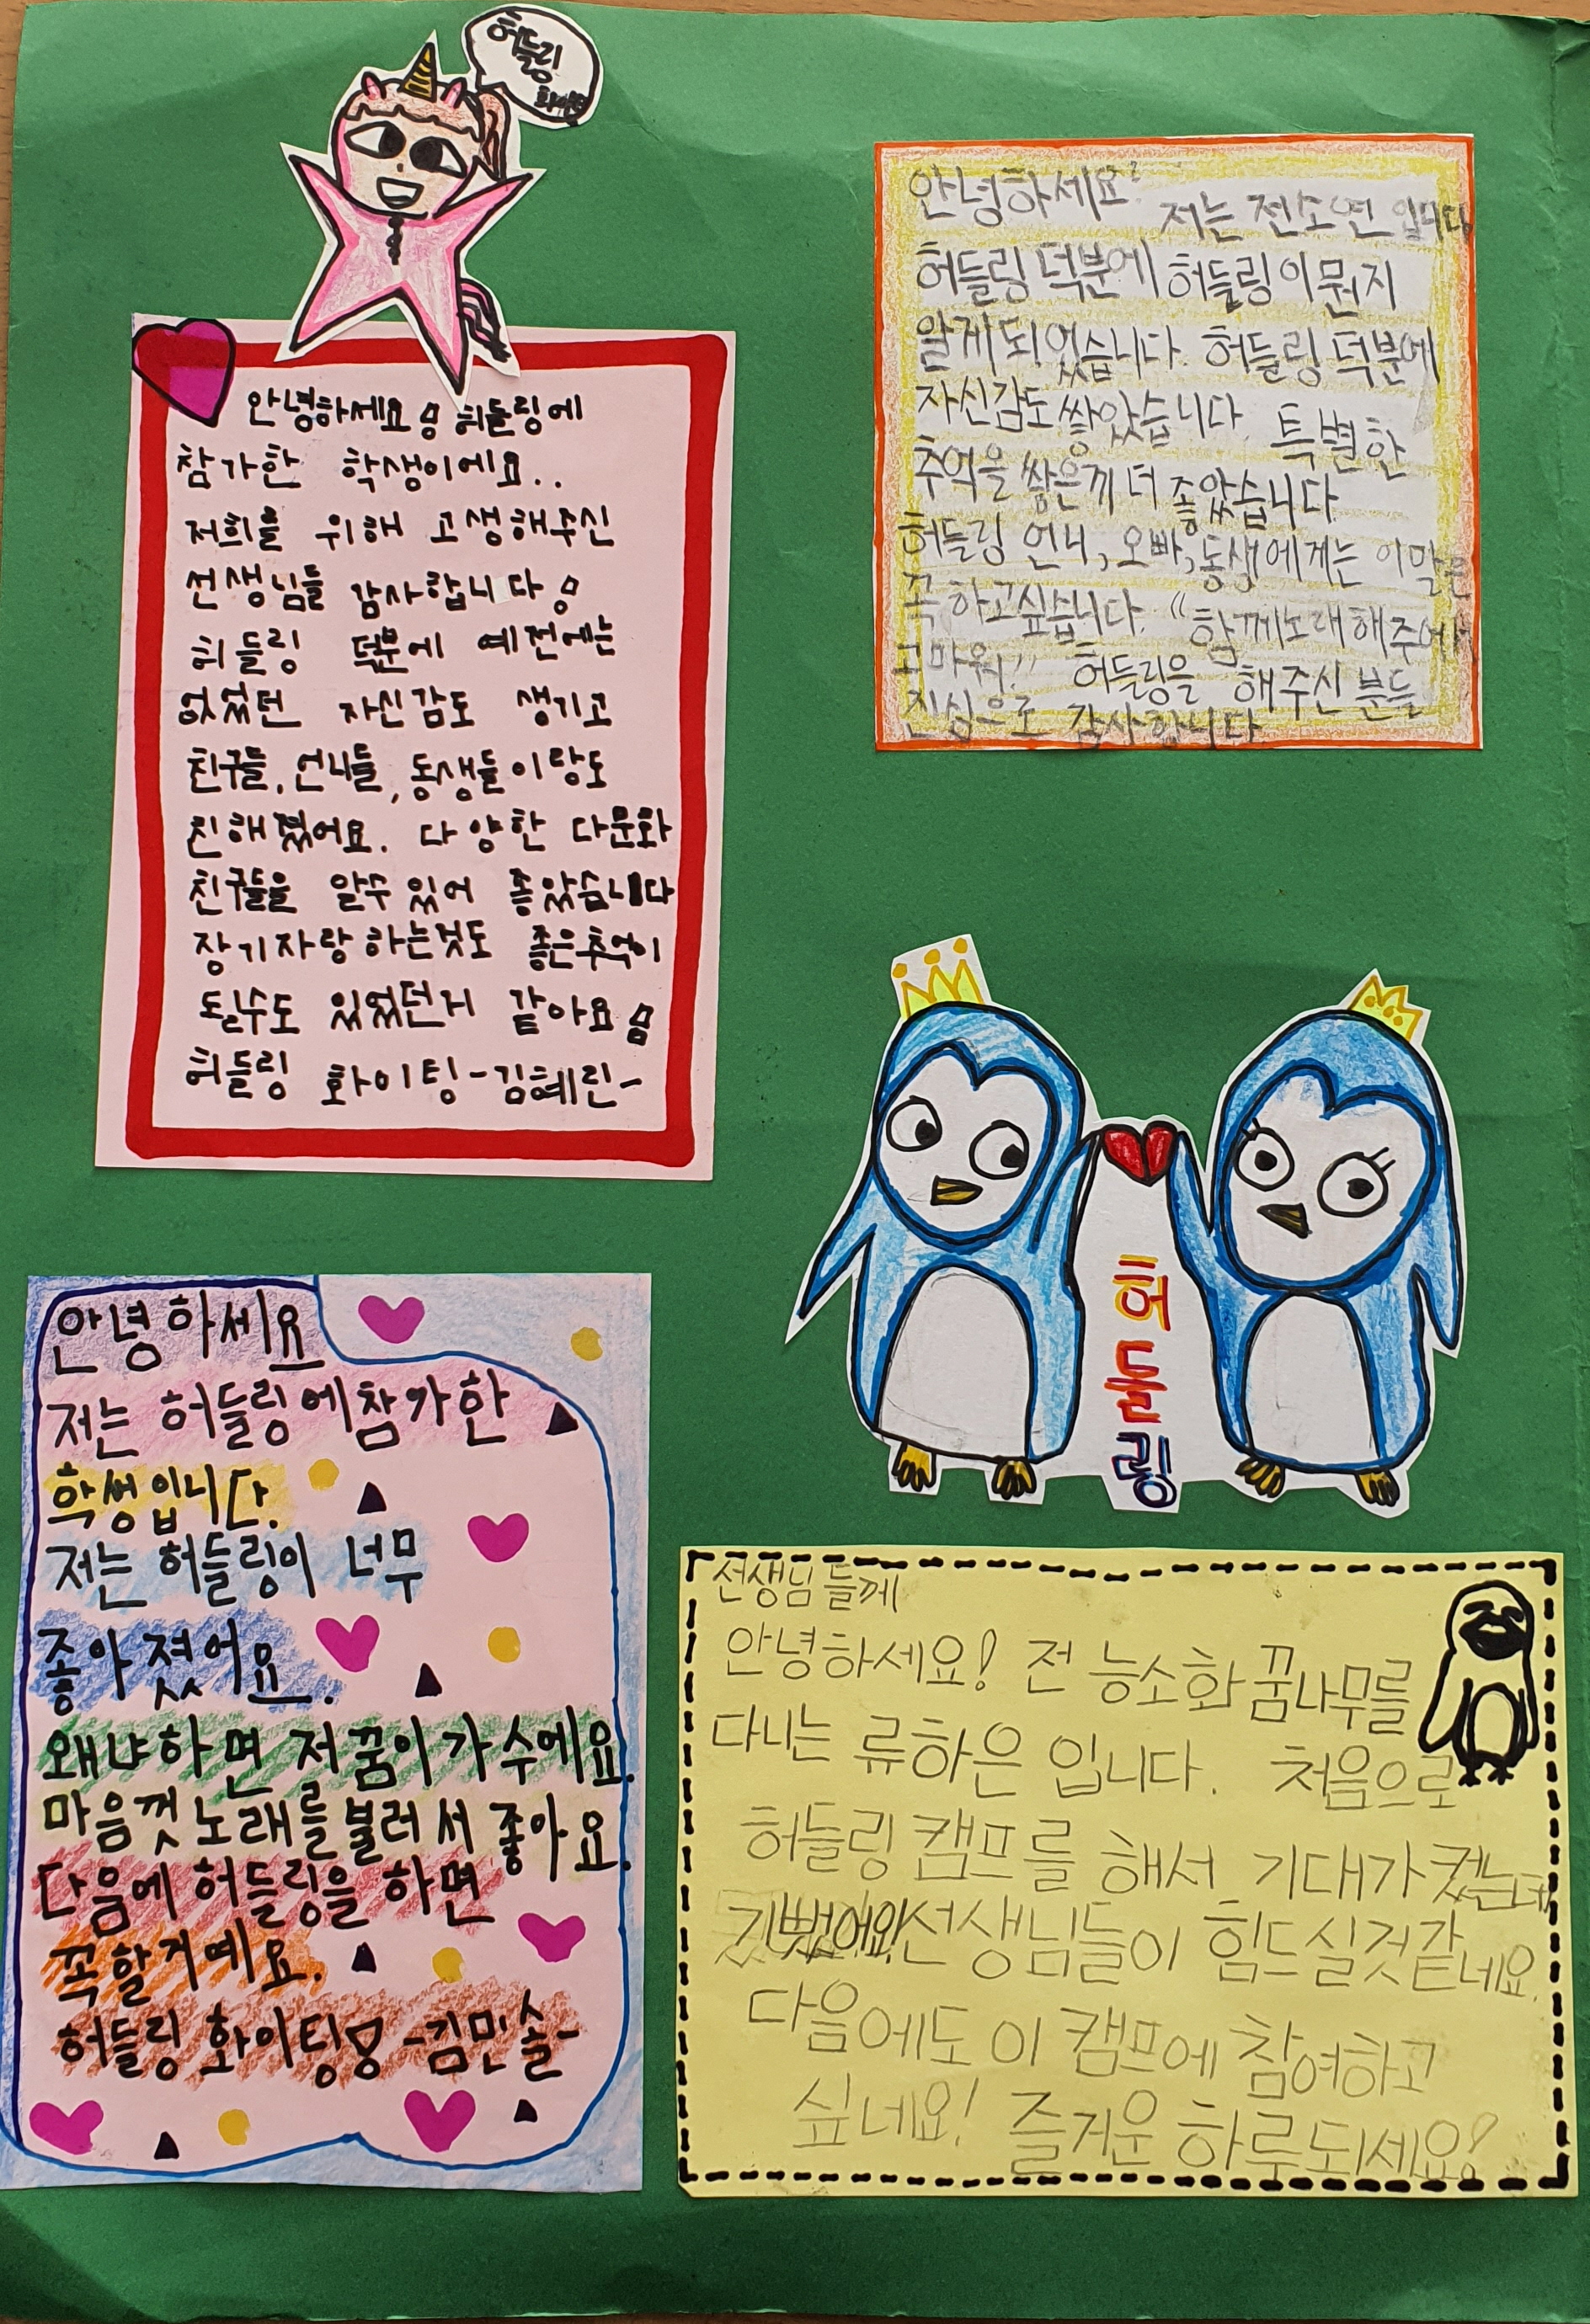 허들링
화이팅
안녕하세요! 허들링에
참가한 학생이에요..
저희를 위해 고생해주신
선생님들 감사합니다!
허들링 덕분에 예전에는
없었던 자신감도 생기고
친구들, 언니들, 동생들이랑도
친해졌어요. 다양한 다문화
친구들을 알수있어 좋았습니다
장기자랑하는것도 좋은추억이
될수도 있었던거 같아요!
허들링 화이팅-김혜린-
안녕하세요? 저는 전소연입니다
허들링 덕분에 허들링이뭔지
알게되었습니다. 허들링 덕분에
자신감도 쌓았습니다. 특별한
추억을 쌓은게 더 좋았습니다
허들링 언니, 오빠, 동생에게는 이말은
꼭 하고싶습니다. "함께노래해주어서
고마워." 허들링을 해주신분들
진심으로 감사합니다.
허들링
안녕하세요
저는 허들링에참가한
학생입니다.
저는 허들링이 너무
좋아졌어요.
왜냐하면 저꿈이가수에요.
마음껏노래를불러서좋아요.
다음에허들링을하면
꼭할거예요.
허들링 화이팅! -김민솔-
선생님들께
안녕하세요! 전 능소화꿈나무를
다니는 류하은 입니다. 처음으로
허들링캠프를 해서 기대가컸는데
선생님들이 힘드실것같네요.
다음에도 이 캠프에 참여하고
싶네요! 즐거운 하루되세요!